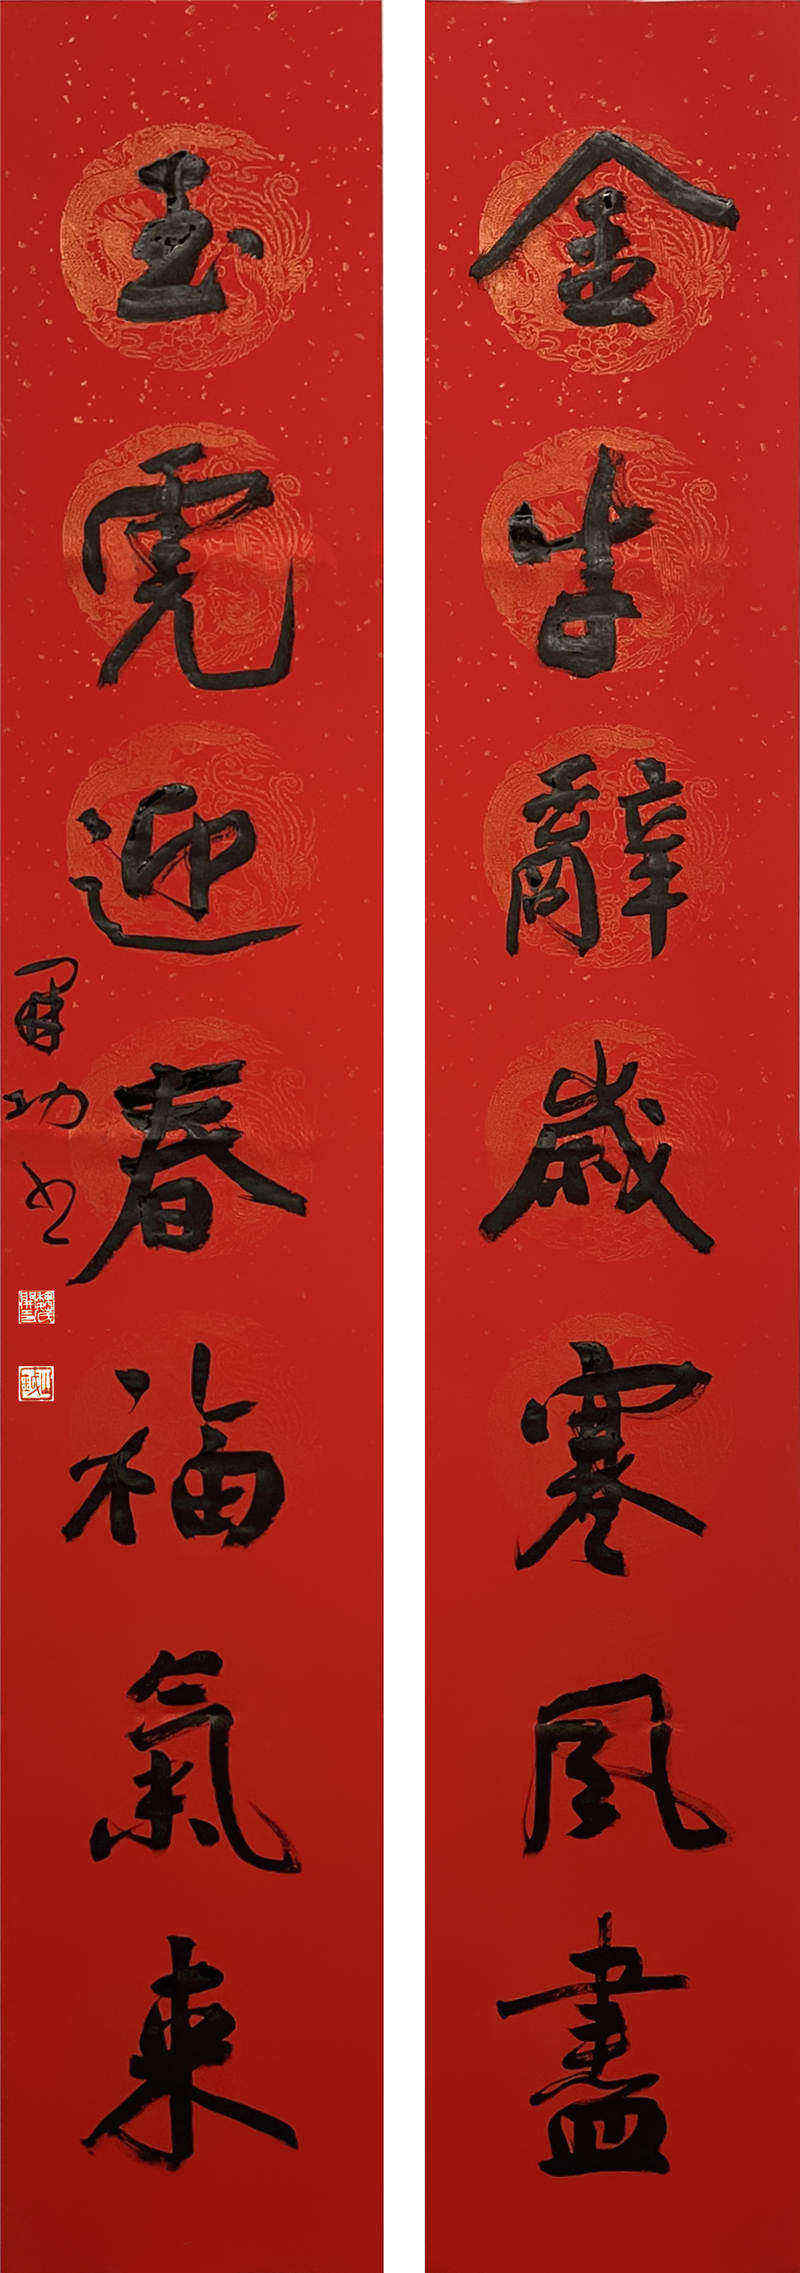 金牛辭歲寒風盡
玉虎迎春福氣來
功书